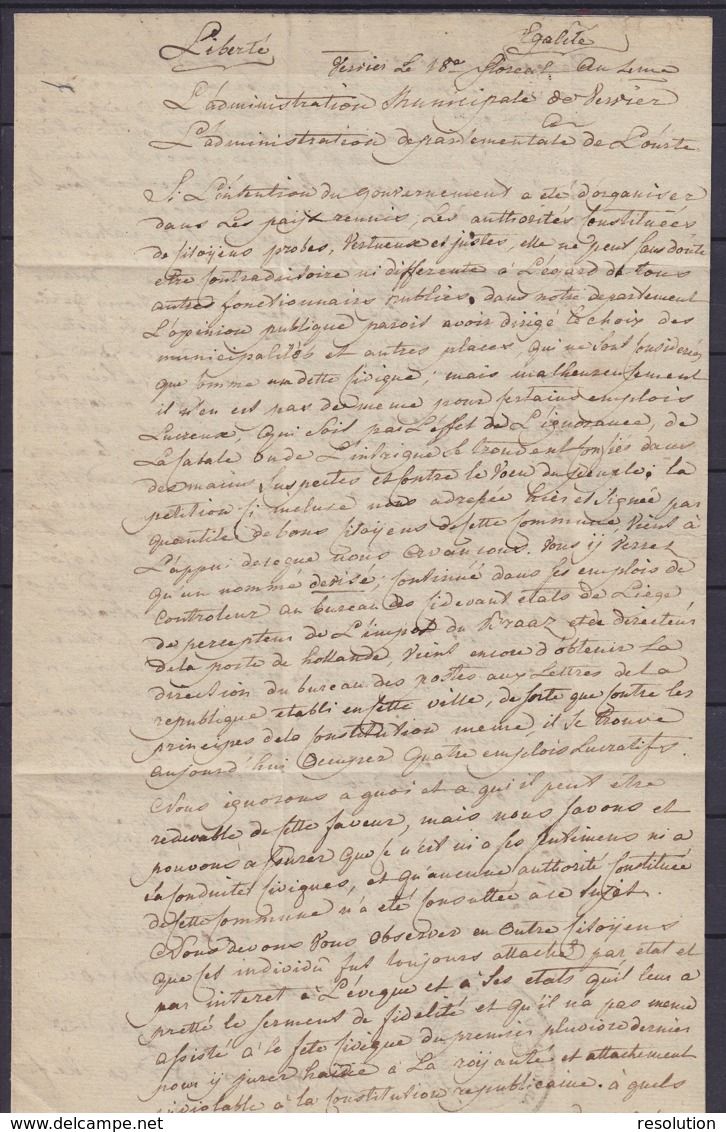 Liberté Egalité
Vervier Le 18e floreal an 4eme
L'administration Municipale de Vervier
a
L'administration departementale de L'ourte
Si L'intention du gouvernement a eté d'organiser
dans Les païx reunis, Les authorités Constituées
de Citoÿens probes, Vertueux et justes, elle ne peut Sans doute
etre Contradictoire ni differente à L'égard de tous
autres fonctionnairs publics, dans notre departement
L'opinion publique paroit avoir dirigé Le choix des
municipalités et autres places, qui ne sont Considerées
que Comme une dette Civique; mais malheureusement
il n'en est pas de meme pour Certains emplois
Lucreux, qui Soit par L'effet de L'ignorance, de
La Cabale ou de L'intrigue se trouvent Confiés dans
des mains Suspectes et Contre le Voeu du peuple; la
petition Ci incluse nous adressée hier et Signée par
quantité de bons Citoÿens de Cette Commune Vient à
L'appui de ce que nous avancons. Vous ij Verrez
qu'un nommé devise; Continué dans Ses emplois de
Controleur au bureau des Cidevant états de Liège
de percepteur de L'empot du Braaz et de directeur
de la poste de hollande, Vient encore d'obtenir La
direction du bureau des postes aux Lettres de la
republique etabli en Cette ville, de sorte que Contre les
principes de la Constitution meme, il Se trouve
aujourd'hui occuper quatre emplois Lucratifs.
Nous ignorons a quoi et a qui il peut etre
redevable de Cette faveur, mais nous Savons et
pouvons assurer que Ce n'est ni a Ses Sentimens ni a
Sa Conduites Civiques, et qu'aucune authorité Constituée
de Cette Commune n'a été Consultée à Ce Sujet.
Nous devons Vous observer en outre Citoÿens
que Cet individu fut toujours attaché par etat et
par interet à L'évêque et à Ses etats qu'il leur a
pretté le Serment de fidelité et qu'il n'a pas meme
assisté à la fete Civique du premier pluviose dernier
pour ij jurer haine à La roÿauté et attachement
inviolable à la Constitution republicaine. à quels
resolution